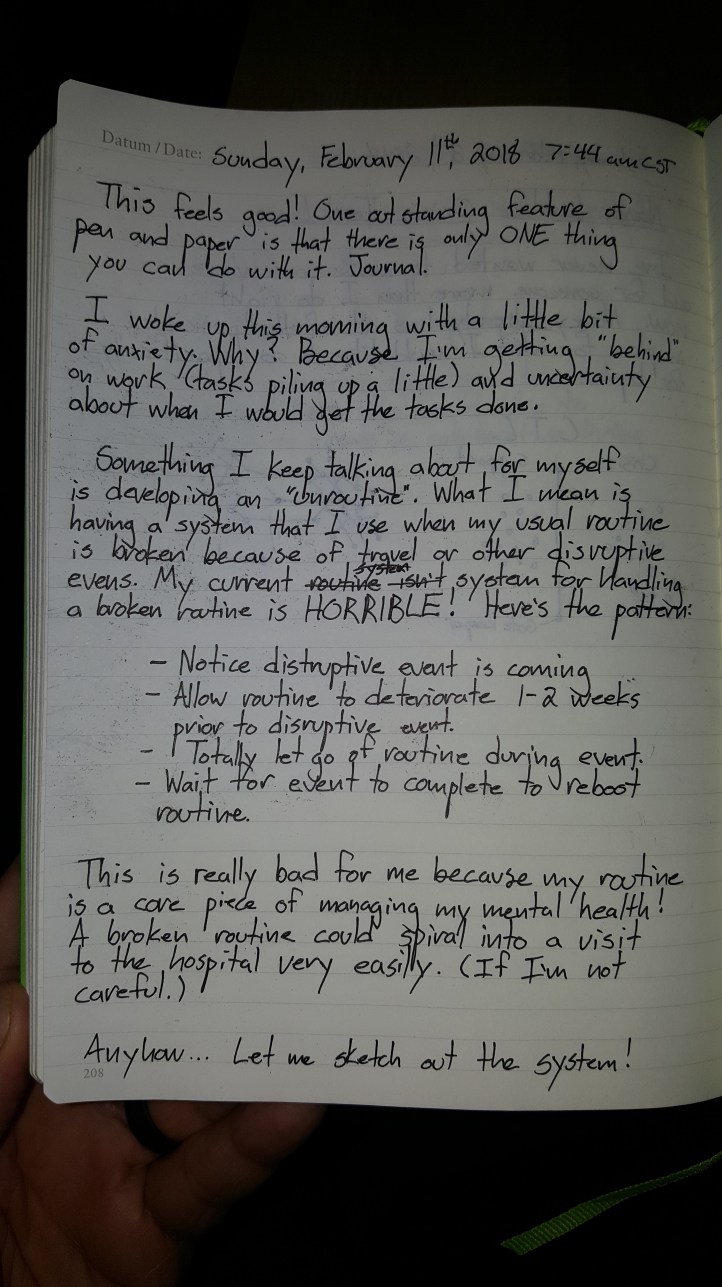 Datum / Date: Sunday, February 11th, 2018 7:44 am CST
This feels good! One outstanding feature of
pen and paper is that there is only ONE thing
you can do with it. Journal.
I woke up this morning with a little bit
of anxiety. Why? Because I'm getting "behind"
on work (tasks piling up a little) and uncertainty
about when I would get the tasks done.
Something I keep talking about for myself
is developing an "unroutine". What I mean is
having a system that I use when my usual routine
is broken because of travel or other disruptive
system
evens. My current routine isn't system for handling
a broken routine is HORRIBLE! Here's the pattern:
- Notice distruptive event is coming
- Allow routine to deteriorate 1-2 weeks
prior to disruptive event.
- Totally let go of routine during event.
- Wait for event to complete to reboot
routine.
This is really bad for me because my routine
is a core piece of managing my mental health!
A broken routine could spiral into a visit
to the hospital very easilly. (If I'm not
careful.)
Anyhow... Let me sketch out the system!
208